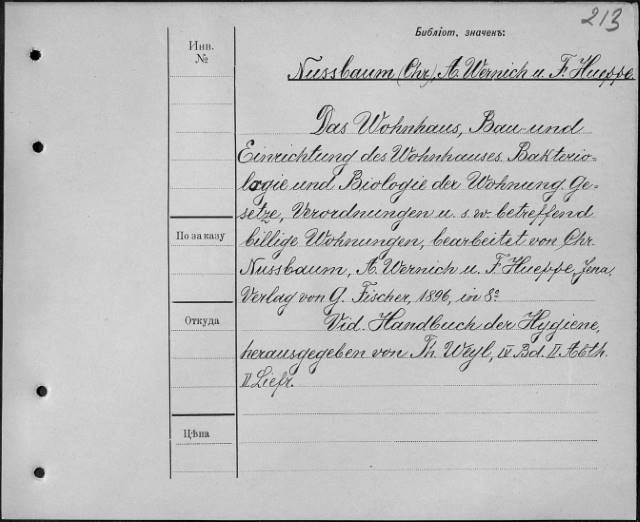 213
Библіот. значекъ:
Инв.
№
Nussbaum (Chr.), A. Wernich u. F. Hueppe.
Das Wohnhaus, Bau und
Einrichtung des Wohnhauses. Bakterio=
logie und Biologie der Wohnung Ge=
setze, Verordnungen u. s. w. betreffend
По заказу
billige Wohnungen, bearbeitet von Chr.
Nussbaum, A. Wernich u. F. Hueppe, Jena,
Verlag von G. Fischer, 1896, in 8º
Откуда
Vid. Handbuch der Hygiene,
herausgegeben von Th. Weyl, IV Bd. II Abth.
II Liefr.
Цѣна